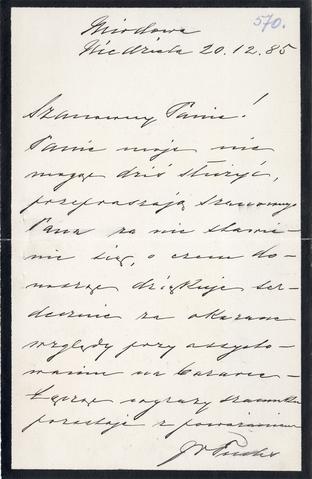 570.
Miodowa
Niedziela 20.12.85
Szanowny Panie!
Panie moje nie
mogąc dziś służyć,
przepraszają Szanownego
Pana za nie stawie-
nie się, o czem do-
nosząc dziękuje ser-
decznie za okazane
względy przy assysto-
waniu na Bazarze.
Łącząc wyrazy szacunku
pozostaję z poważaniem